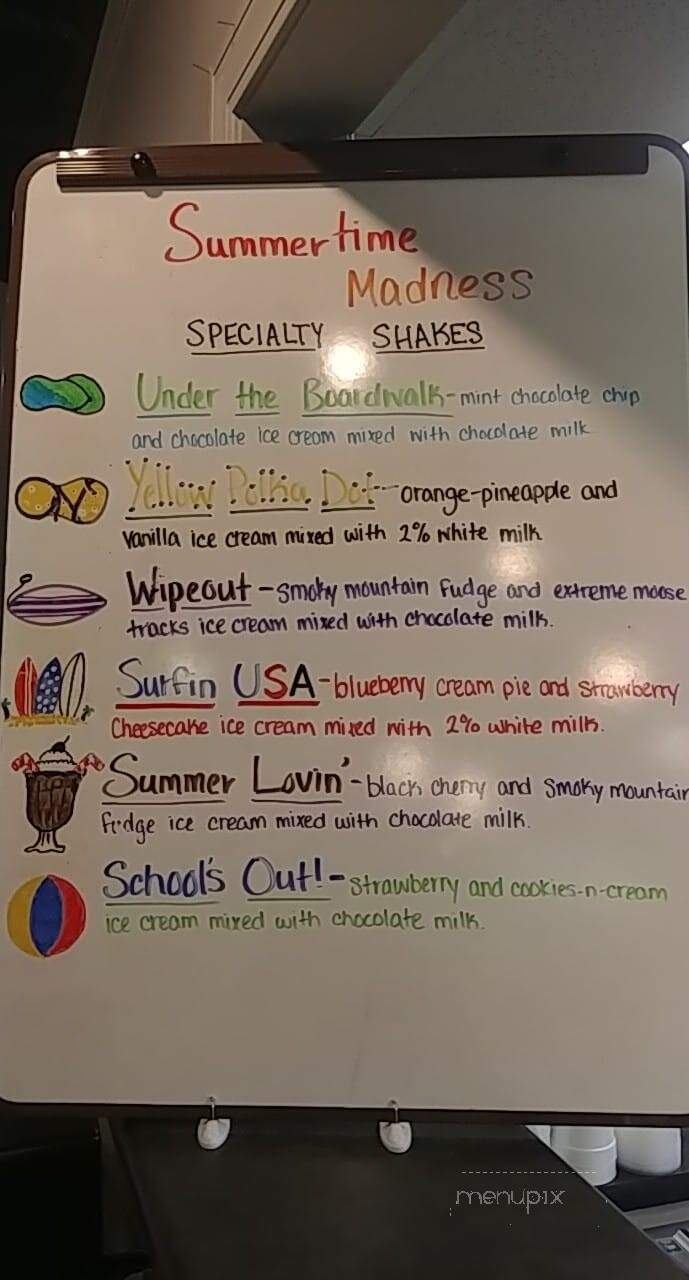 Summertime
Madness
SPECIALTY SHAKES
Under the Boardwalk-mint chocolate chip
and chocolate ice cream mixed with chocolate milk
Yellow Polka Dot-orange-pineapple and
vanilla ice cream mixed with 2% white milk
Wipeout-smoky mountain fudge and extreme moose
tracks ice cream mixed with chocolate milk.
Surfin USA-blueberry cream pie and strawberry
Cheesecake ice cream mixed with 2% white milk.
Summer Lovin'-black cherry and smoky mountain
fudge ice cream mixed with chocolate milk.
School's Out!-strawberry and cookies-n-cream
ice cream mixed with chocolate milk.
menupix